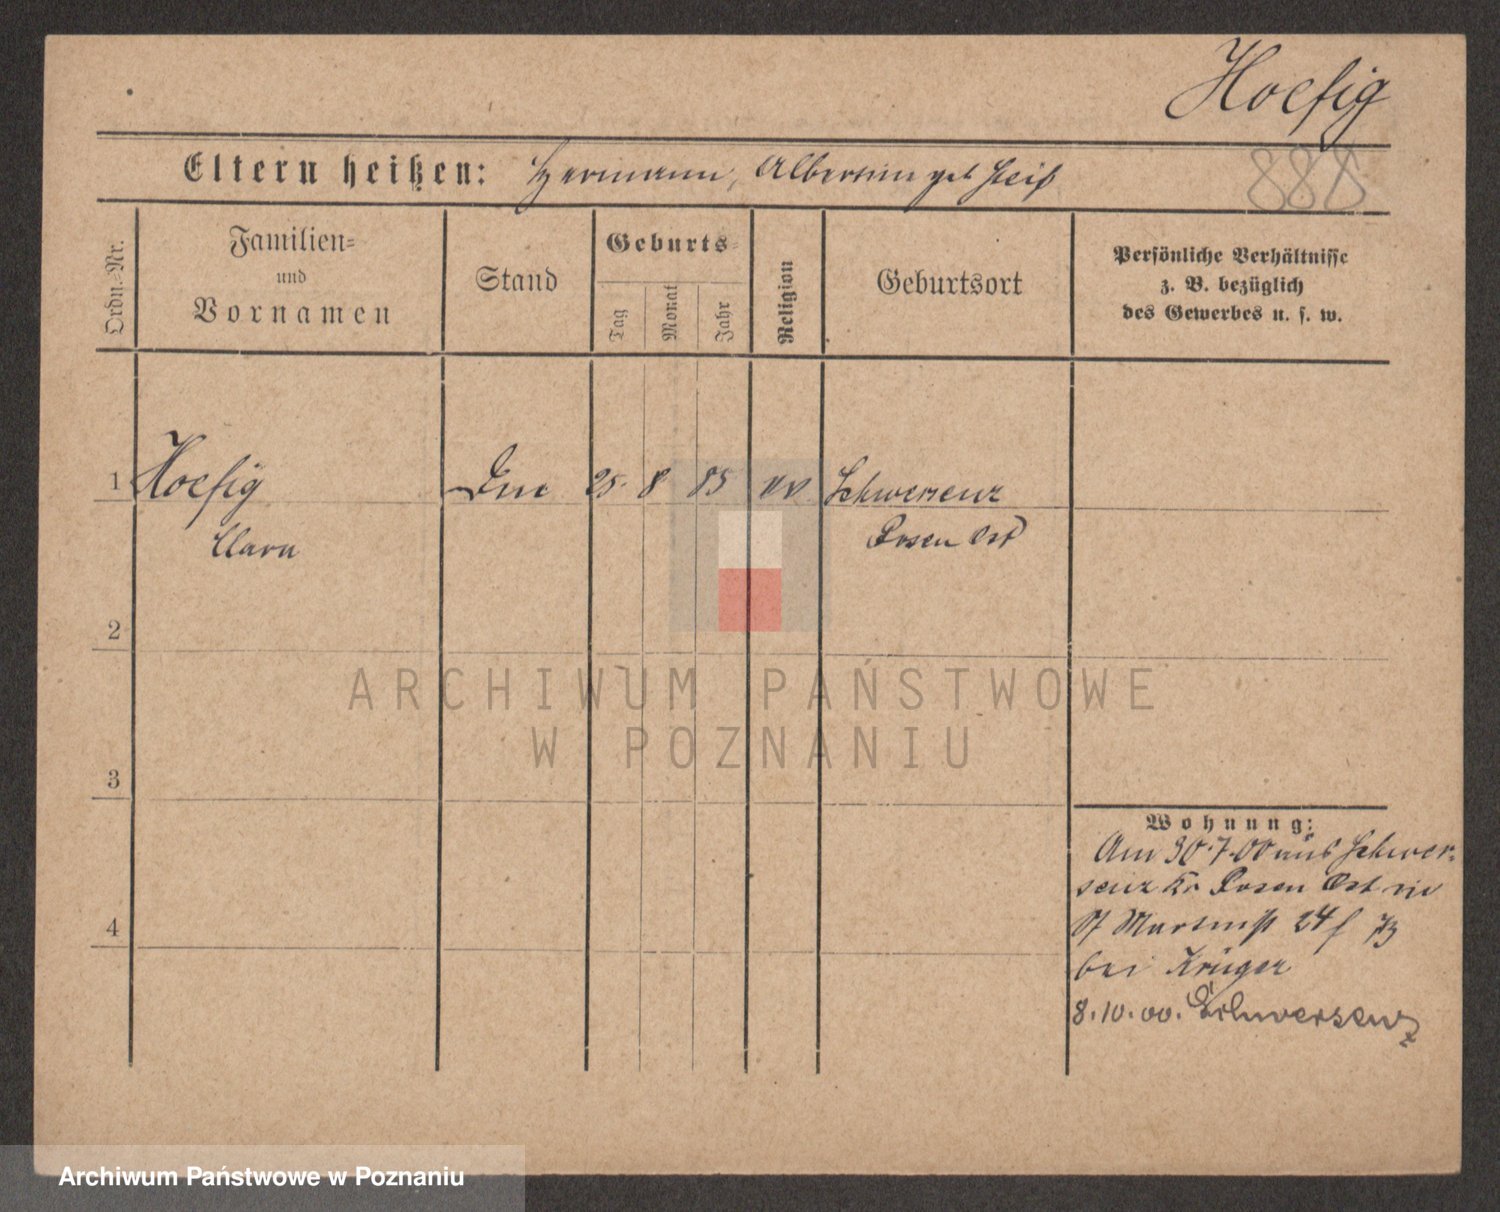 Hoefig
888
Eltern heißen: Hermann, Albertine geb
Ordn.-Nr.
Familien= und Vornamen
Stand
Geburts=
Tag
Monat
Jahr
Religion
Geburtsort
Persönliche Verhältnisse
z. B. bezüglich
des Gewerbes u. s. w.
1 Hoefig 25. 8 85 ev Schwersenz
Clara Posen Ost
2
3
4
Wohnung:
Am 30.7.00 aus Schwer-
senz Kr Posen Ost
St Martinst 24
bei Krüger
8.10.00. Schwersenz
ARCHIWUM PAŃSTWOWE
W POZNANIU
Archiwum Państwowe w Poznaniu